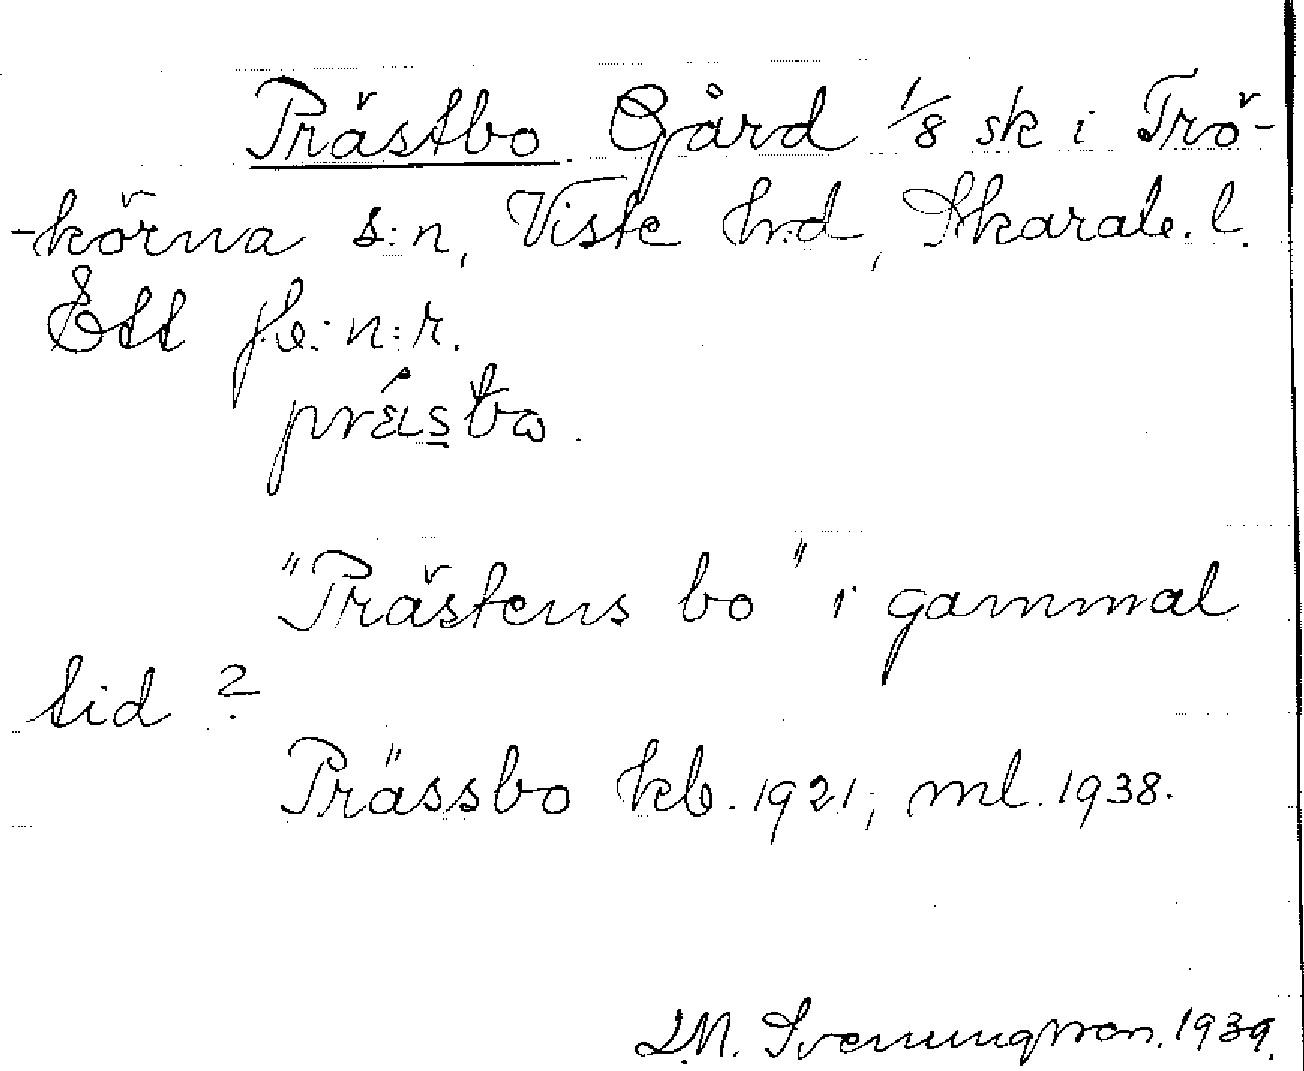 Prästbo Gård 1/8 sk i Trö-
-körna s:n, Viste h:d, Skarab. l.
Ett fb:n:r.
"Prästens bo" i gammal
tid ?
Prässbo kb. 1921; ml. 1938.
D.M. Svenungsson. 1939.